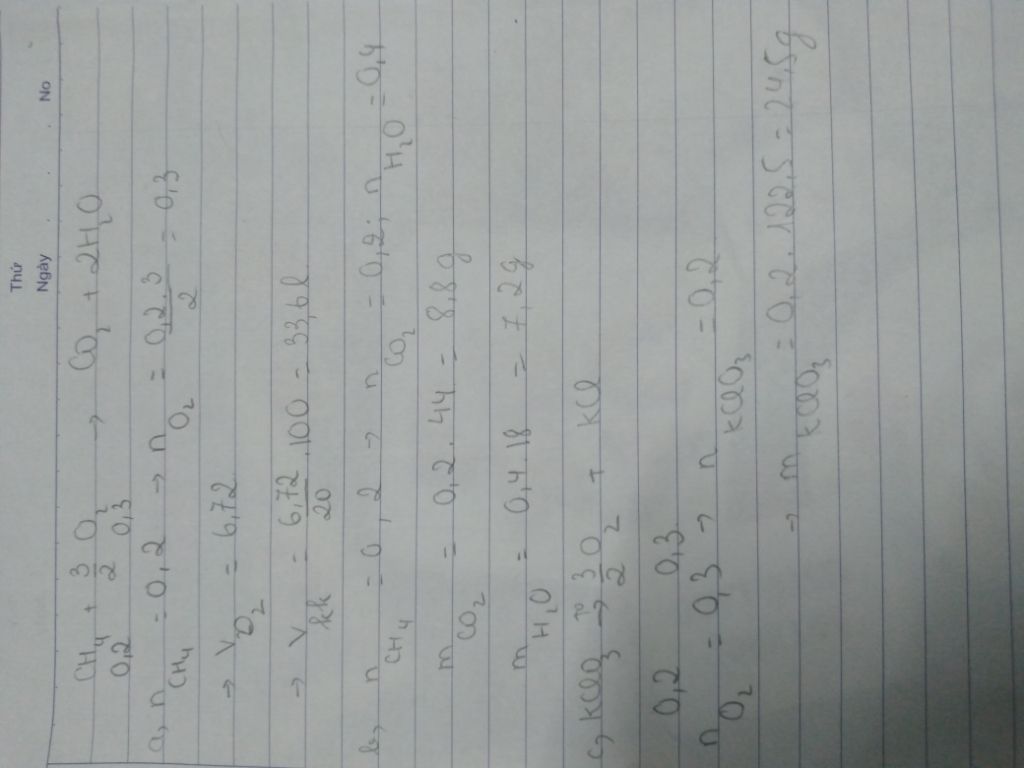 Thứ
Ngày No
CH₄ + 3/2 O₂ → CO₂ + 2H₂O
0,2 0,3
a, n CH₄ = 0,2 → n O₂ = 0,2.3/2 = 0,3
→ V O₂ = 6,72
→ V kk = 6,72/20 .100 = 33,6l
b, n CH₄ = 0,2 → n CO₂ = 0,2; n H₂O = 0,4
m CO₂ = 0,2.44 = 8,8g
m H₂O = 0,4.18 = 7,2g
c, KClO₃ t° → 3/2 O₂ + KCl
0,2 0,3
n O₂ = 0,3 → n KClO₃ = 0,2
→ m KClO₃ = 0,2.122,5 = 24,5g